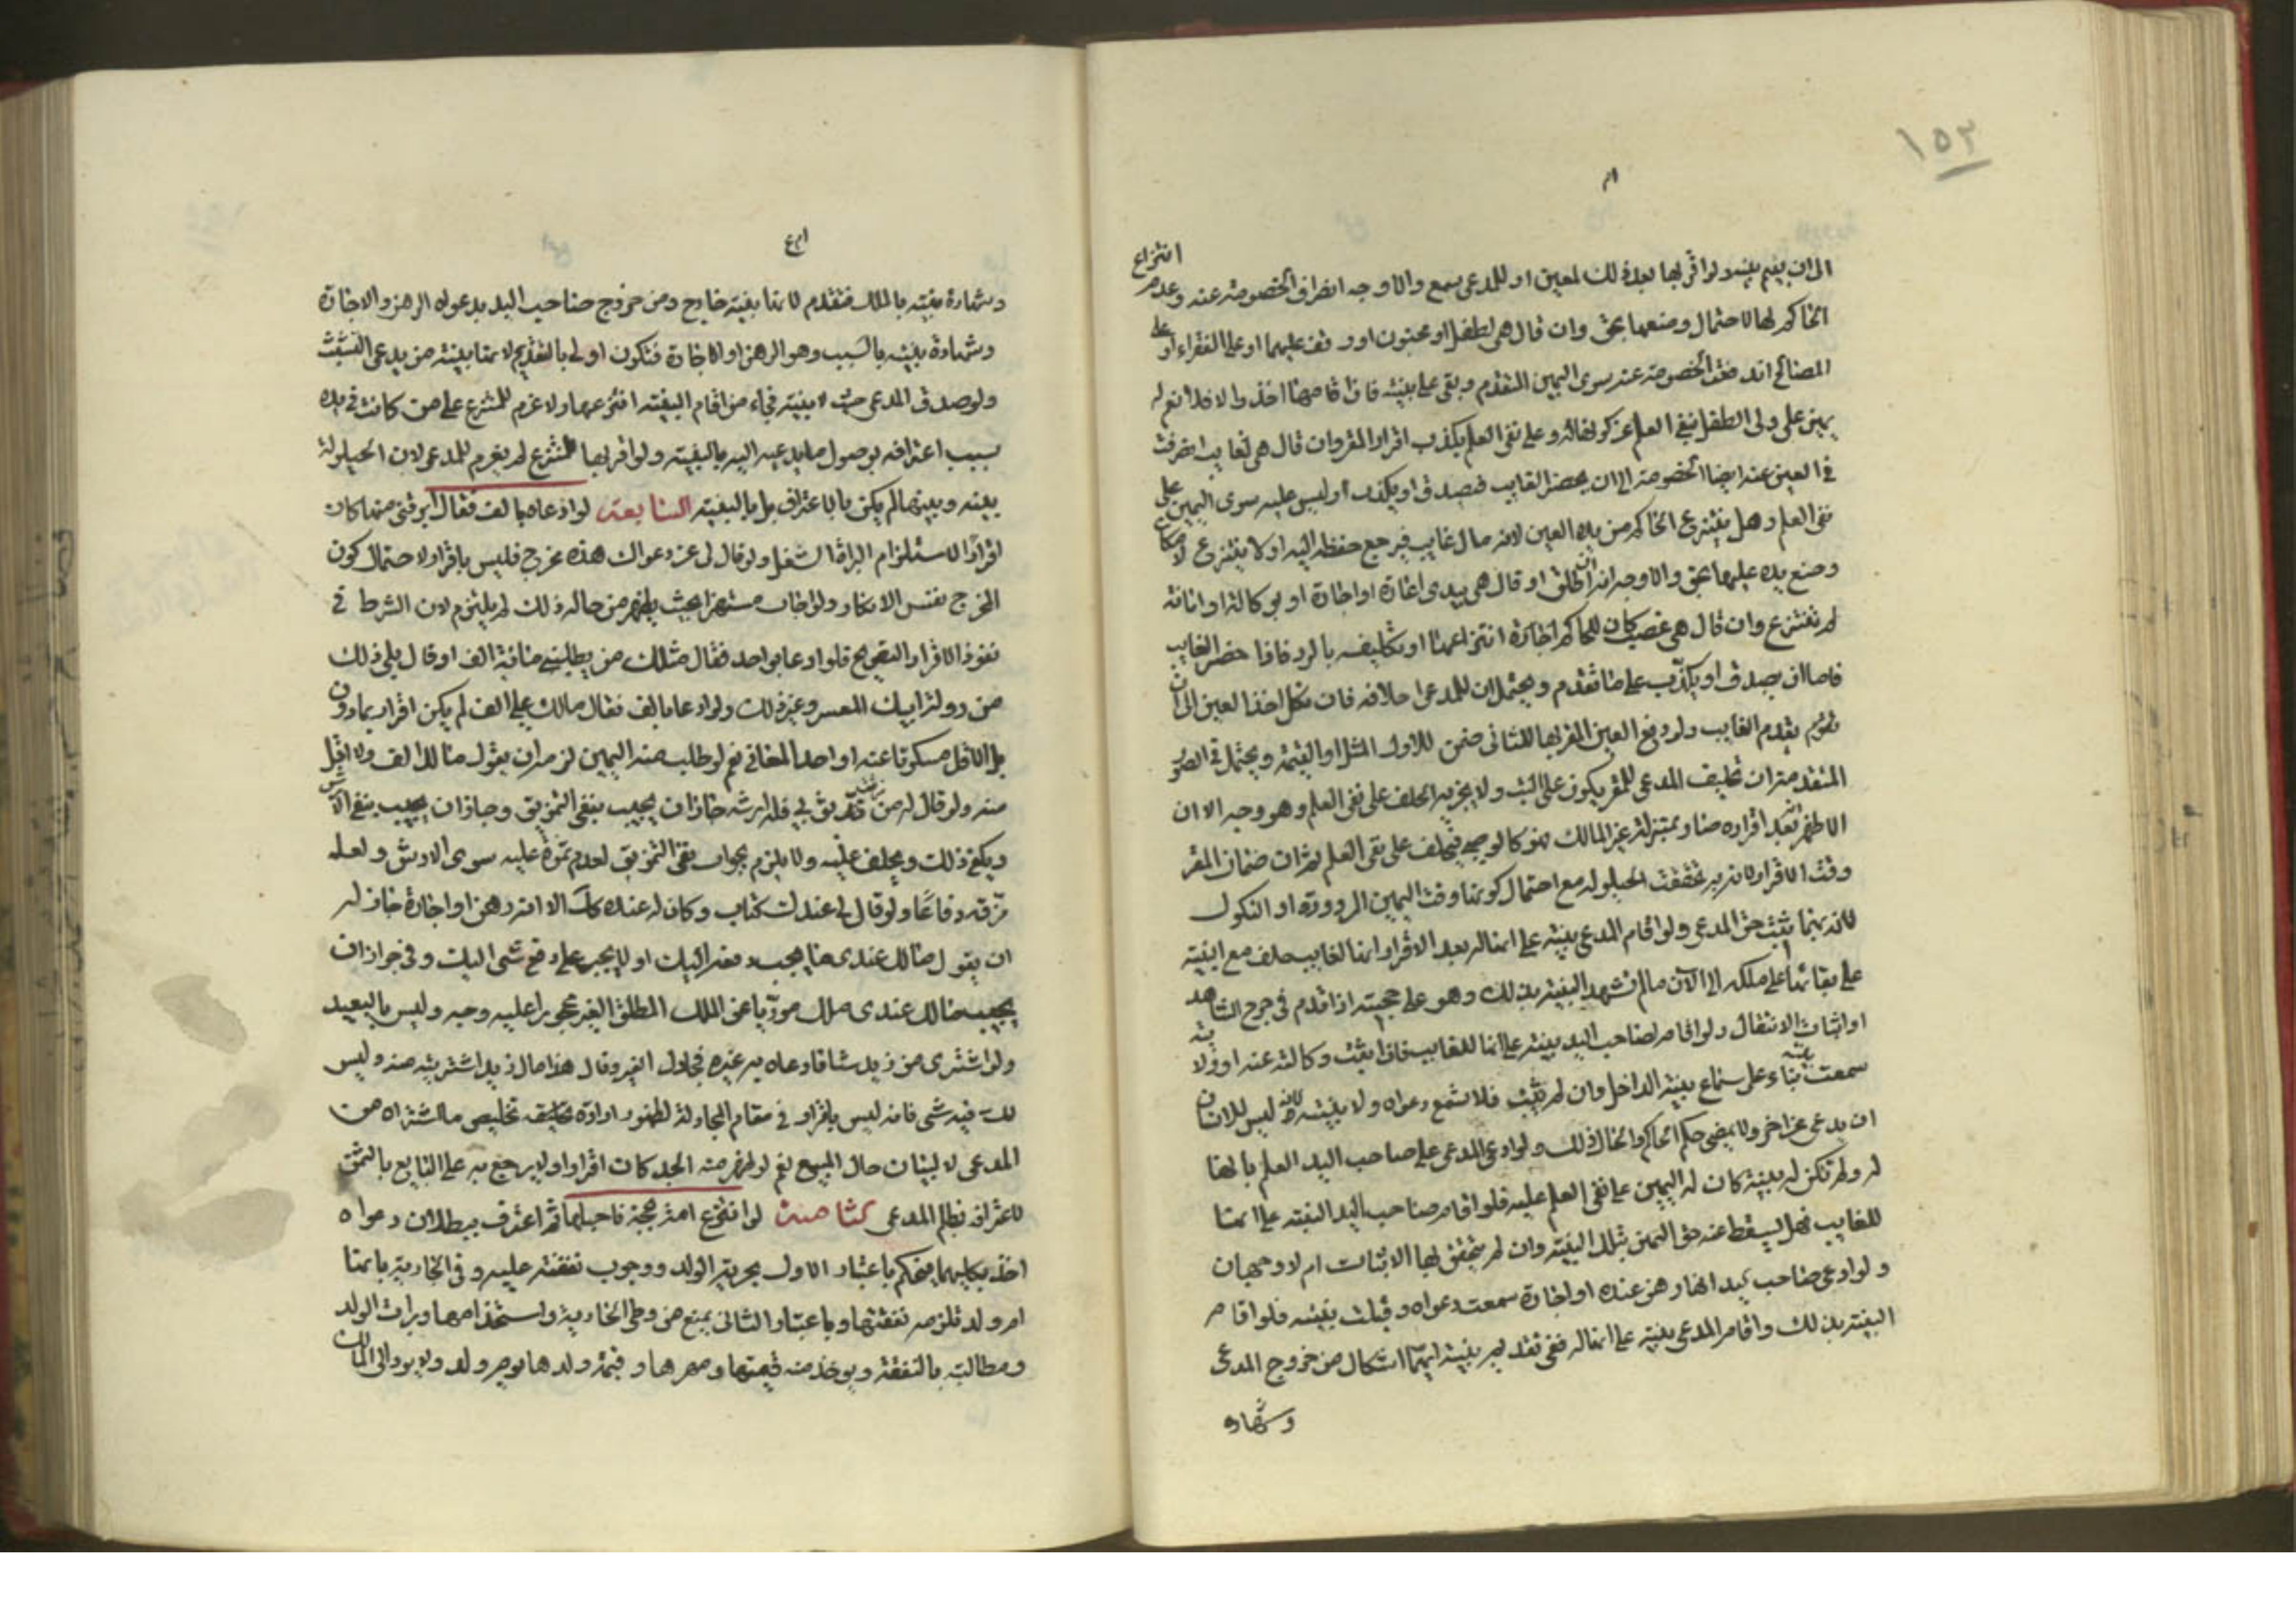 ١٥٣
انتزاع
الى ان يقيم بينة ولو اقر بها بعد ذلك لمعين او للمدعى سمع والاوجه انصراف الخصومة عنه وعدم
الحاكم لها لاحتمال ومنعها بحق وان قال هى لطفل او مجنون او وقف عليهما او على الفقراء او على
المصالح اندفعت الخصومة عنه سوى اليمين المتقدم وبقى على بينته فان اقامها اخذ والا فلا نعم له
يمين على ولى الطفل بنفى العلم عن كونها له وعلى نفى العلم بكذب اقرار المقر وان قال هى لغايب انصرفت
فى العين عنه ايضا الخصومة الى ان يحضر الغايب فيصدق او يكذب او ليس عليه سوى اليمين على
نفى العلم وهل ينتزع الحاكم من يده العين لانه مال غايب فيرجع حفظه اليه او لا ينتزع لامكان
وضع يده عليها بحق والاوجه انه ان اطلق او قال هى بيدى اعارة او اجارة او بوكالة او امانة
لم تنتزع وان قال هى غصب كان للحاكم انتزاعها او تكليفه بالرد فاذا حضر الغايب
فاما ان يصدق او يكذب على ما تقدم ويحتمل ان للمدعى احلافه فان نكل اخذ العين الى ان
يقدم الغايب ولو دفع العين المقر بها للثانى ضمن للاول المثل او القيمة ويحتمل فى الصور
المتقدمة ان تحليف المدعى للمقر يكون على البت ولا يجزيه الحلف على نفى العلم وهو وجيه الا ان
الاظهر بعد اقراره صار بمنزلة غير المالك فيحلف على نفى العلم ثم ان ضمان المقر
وقت الاقرار لان به تحققت الحيلولة مع احتمال كونها وقت اليمين المردودة او النكول
لان بهما يثبت حق المدعى ولو اقام المدعى بينة على انها له بعد الاقرار انها لغايب حلف مع البينة
على بقائها على ملكه الى الآن ما لم تشهد البينة بذلك وهو على حجيته اذا قدم فى جرح الشاهد
او اثبات الانتقال ولو اقام صاحب اليد بينة على انها للغايب فاذا اثبت وكالته عنه او ولايته
سمعت بينته بناء على سماع بينة الداخل وان لم يثبت فلا تسمع دعواه ولا بينته لانه ليس للانسان
ان يدعى عن اخر ولا يمضى حكم الحاكم والحال ذلك ولو ادعى المدعى على صاحب اليد العلم بانها
له ولم تكن له بينة كان له اليمين على نفى العلم عليه فلو اقام صاحب اليد البينة على انها
للغايب فهل يسقط عنه حق اليمين بتلك البينة وان لم يتحقق بها الاثبات ام لا وجهان
ولو ادعى صاحب اليد انها رهن عنده او اجارة سمعت دعواه وقبلت بينته فلو اقام
البينة بذلك واقام المدعى بينة على انها له ففى تقديم بينة ايهما اشكال من خروج المدعى
وشهادة
وشهادة بينته بالملك فتقدم لانها بينة خارج ومن خروج صاحب اليد بدعواه الرهن والاجارة
وشهادة بينته بالسبب وهو الرهن او الاجارة فتكون اولى بالتقديم لانها بينة من يدعى التشبث
ولو صدق المدعى حيث لا بينة فجاء من اقام البينة انتزعها ولا غرم للمنتزع على من كانت فى يده
بسبب اعترافه بوصول ما يدعيه اليه بالبينة ولو اقر بها للمنتزع لم يغرم للمدعى لان الحيلولة
بينه وبينها لم يكن بالاعتراف بل بالبينة السابعة لو ادعاه بالف فقال ابرئنى منها كان
اقرارا لاستلزام البراءة الشغل ولو قال لى عن دعواك هذه مخرج فليس باقرار لاحتمال كون
المخرج نفس الانكار ولو اجاب مستهزا بحيث يظهر من حاله ذلك لم يلتزم لان الشرط فى
نفوذ الاقرار التصريح فلو ادعا بواحد فقال مثلك من يطلب مائة الف او قال بلى ذلك
من دولة ابيك المعسر وغير ذلك ولو ادعا بالف فقال مالك على الف لم يكن اقرار بما دون
بل الاقل مسكوتا عنه او احد المعانى نعم لو طلب منه اليمين لزم ان يقول مالك الف ولا اقل
منه ولو قال له مزقت ثوبى فلى ارشه جاز ان يجيب بنفى التمزيق وجاز ان يجيب بنفى الارش
ويكفى ذلك ويحلف عليه ولا يلزم بجواب نفى التمزيق لعدم ثمرة عليه سوى الارش ولعله
مزقه دفاعا ولو قال لى عندك كتاب وكان له عنده كك الا انه رهن او اجارة جاز له
ان يقول مالك عندى ما يجب دفعه اليك او لا يجبر على دفع شى اليك وفى جواز ان
يجيب مالك عندى ملك موريا عن الملك المطلق الغير محجور عليه وجه وليس بالبعيد
ولو اشترى من زيد شاة فادعاه به غيره فجادل الغير وقال هذا مال زيد اشتريته منه وليس
لك فيه شى فانه ليس باقرار فى مقام المجادلة لظهور ارادة تخليص ما اشتراه من
المدعى لا لبيان حال المبيع نعم لو ظهر منه الجد كان اقرارا ولا يرجع به على البايع بالثمن
لاعترافه بظلم المدعى الثامنة لو انتزع امة بحجة فاحبلها ثم اعترف ببطلان دعواه
اخذ بكليهما فيحكم باعتبار الاول بحرية الولد ووجوب نفقته عليه وفى الجارية بانها
ام ولد فلزمه نفقتها وباعتبار الثانى يمنع من وطى الجارية واستخدامها وبراث الولد
ومطالبته بالنفقة ويوخذ منه قيمتها ومهرها وقيمة ولدها يوم ولد ولا يرد الى المالك